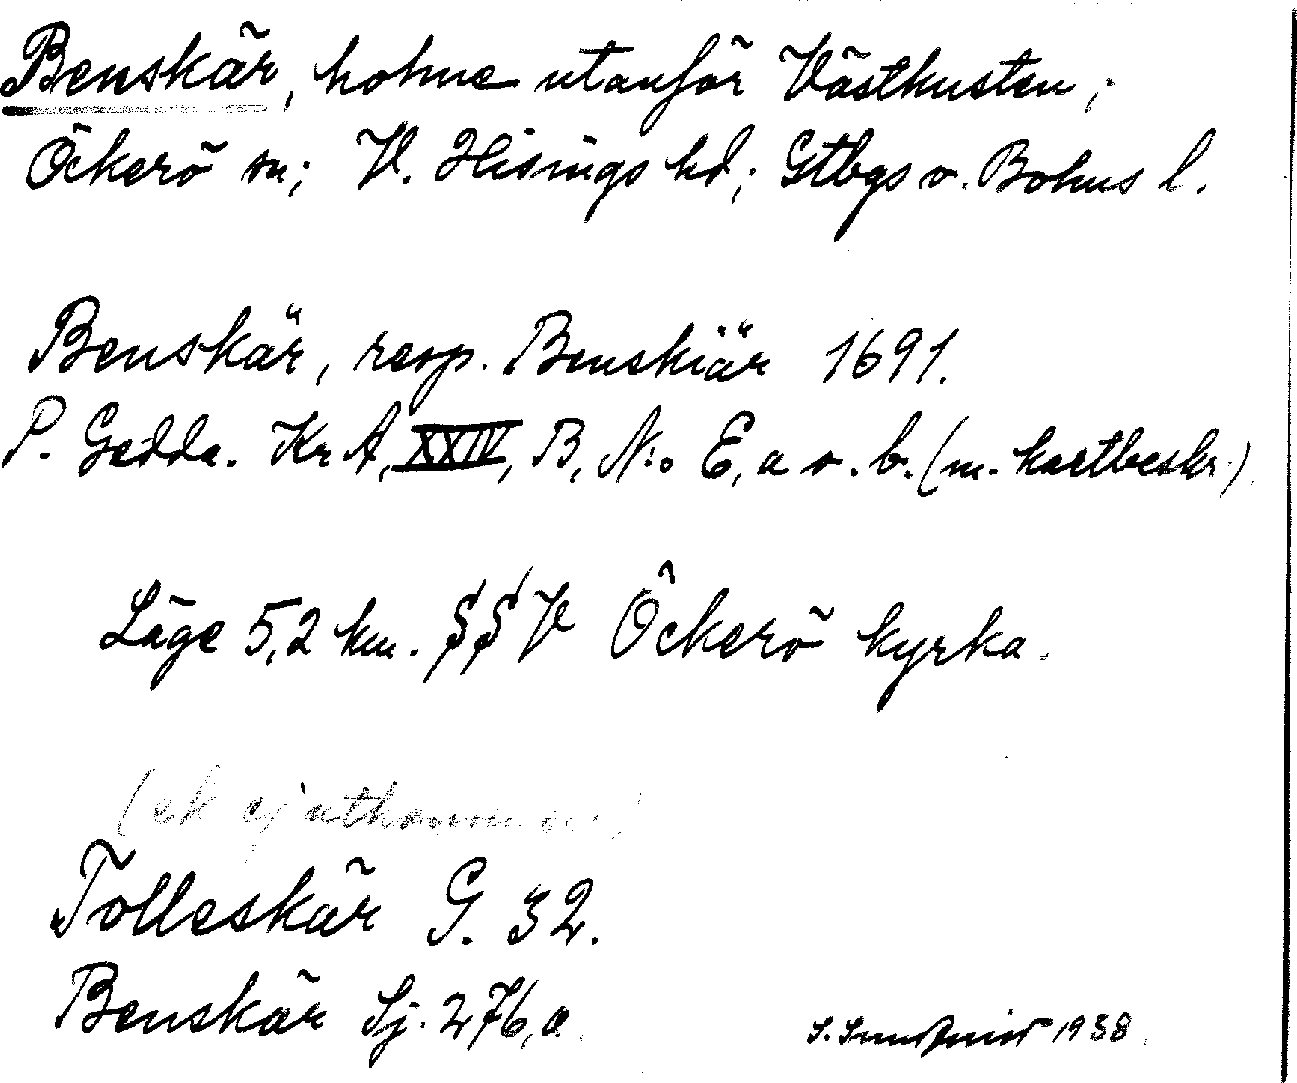 Benskär, holme utanför Västkusten;
Öckerö sn; V. Hisings hd; Gtbgs o. Bohus l.
Benskär, resp. Benskiär 1691.
P. Gedda. Kr A, XXIV, B, N:o E, a o. b. (m. kartbeskr.)
Läge 5,2 km. SSV Öckerö kyrka.
(ek ej utkommen)
Tolleskär G. 32.
Benskär Sj. 276,a.
S. 1938.